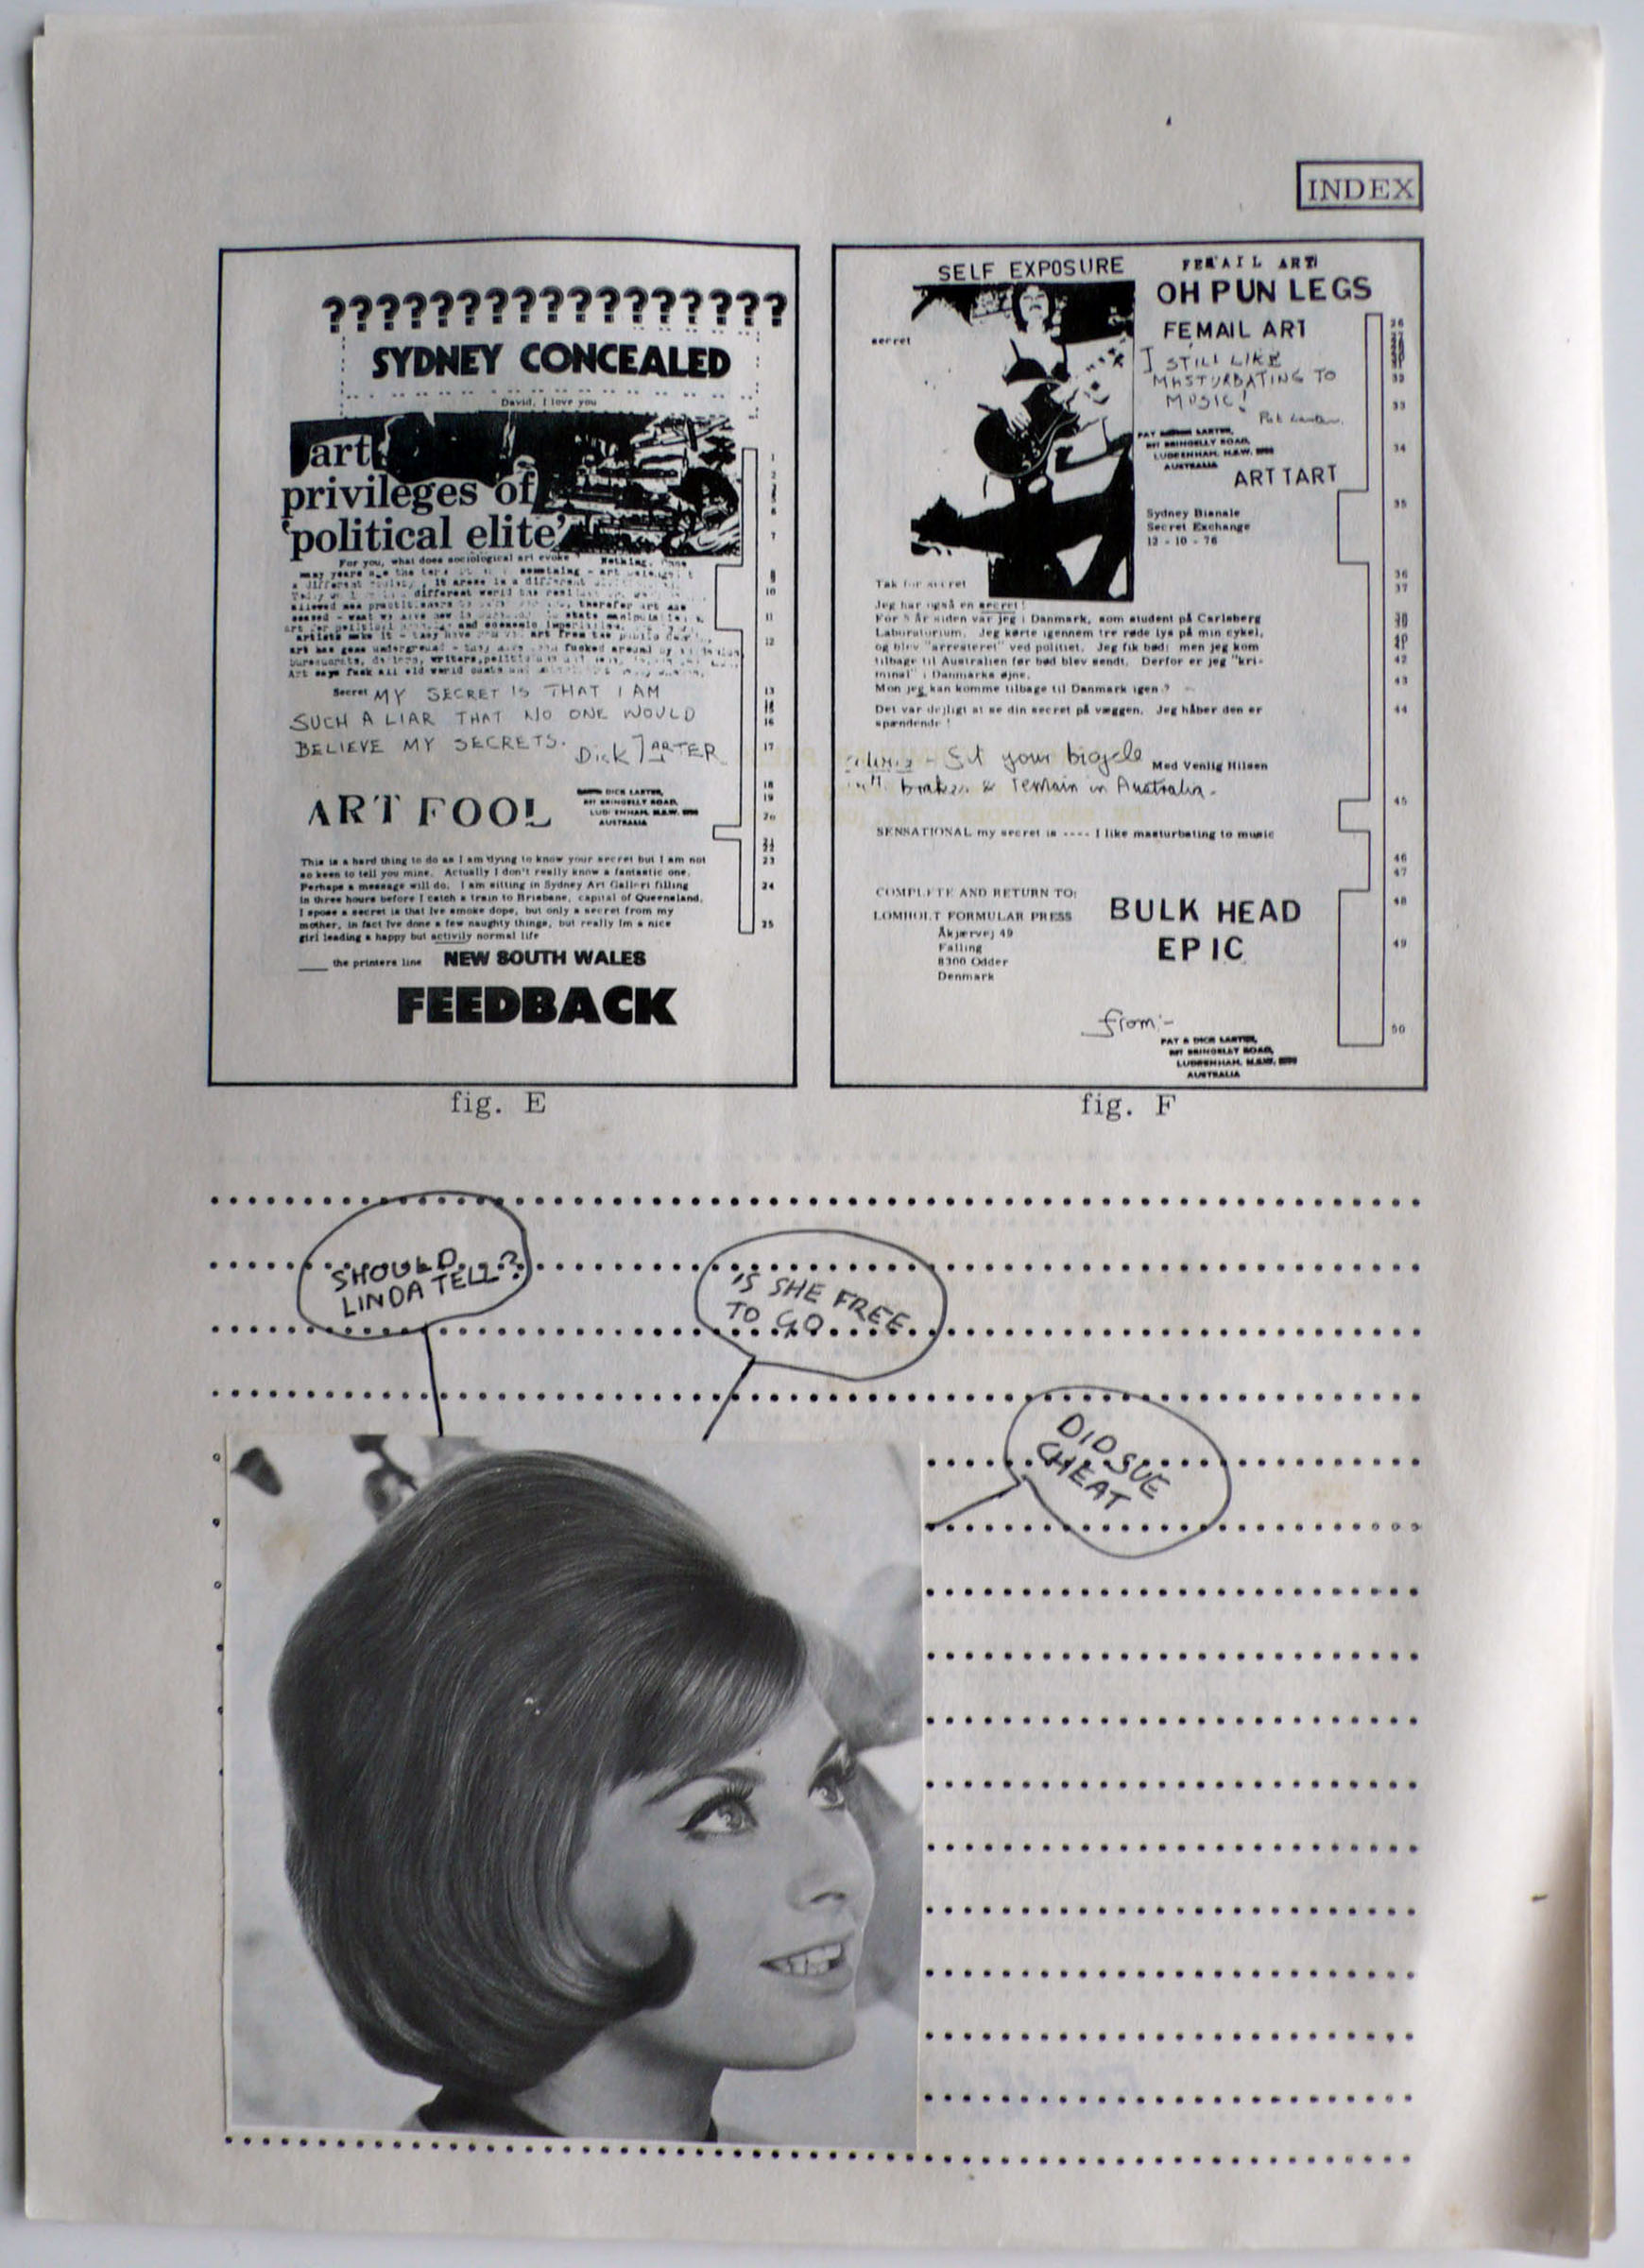 INDEX
?????????????????
SYDNEY CONCEALED
David, I love you
art
privileges of
'political elite'
For you, what does sociological art evoke Nothing.
many years
a different society, it arose is a different
different world
allowed
art for political and economic imperialism.
artists make it - they have art from the public
art has gone underground - fucked around by
bureaucrats, dealers, writers,
Art says fuck all old world
Secret MY SECRET IS THAT I AM
SUCH A LIAR THAT NO ONE WOULD
BELIEVE MY SECRETS. Dick LARTER
ART FOOL
DICK LARTER,
BRINGELLY ROAD,
LUDDENHAM, N.S.W.
AUSTRALIA
This is a hard thing to do as I am dying to know your secret but I am not
so keen to tell you mine. Actually I don't really know a fantastic one.
Perhaps a message will do. I am sitting in Sydney Art Galleri filling
in three hours before I catch a train to Brisbane, capital of Queensland.
I spose a secret is that Ive smoke dope, but only a secret from my
mother, in fact Ive done a few naughty things, but really Im a nice
girl leading a happy but activily normal life
the printers line NEW SOUTH WALES
FEEDBACK
1
2
7
10
11
12
13
16
17
18
19
20
23
24
25
fig. E
SELF EXPOSURE
FEMAIL ART
OH PUN LEGS
secret
FEMAIL ART
I STILL LIKE
MASTURBATING TO
MUSIC!
Pat Larter.
PAT LARTER,
BRINGELLY ROAD,
LUDDENHAM, N.S.W.
AUSTRALIA
ART TART
Sydney Bianale
Secret Exchange
12 - 10 - 76
Tak for secret
Jeg har også en secret!
For 5 år siden var jeg i Danmark, som student på Carlsberg
Laboratorium. Jeg kørte igennem tre røde lys på min cykel,
og blev "arresteret" ved politiet. Jeg fik bød: men jeg kom
tilbage til Australien før bød blev sendt. Derfor er jeg "kri-
minal" i Danmarks øjne.
Mon jeg kan komme tilbage til Danmark igen?
Det var dejligt at se din secret på væggen. Jeg håber den er
spændende!
- Sit your bicycle
Med Venlig Hilsen
& remain in Australia.
SENSATIONAL my secret is ---- I like masturbating to music
COMPLETE AND RETURN TO:
LOMHOLT FORMULAR PRESS
Åkjærvej 49
Falling
8300 Odder
Denmark
BULK HEAD
EPIC
from:-
PAT & DICK LARTER,
BRINGELLY ROAD,
LUDDENHAM, N.S.W.
AUSTRALIA
26
32
33
34
35
36
37
42
43
44
45
46
47
48
49
50
fig. F
SHOULD
LINDA TELL?
IS SHE FREE
TO GO
DID SUE
CHEAT